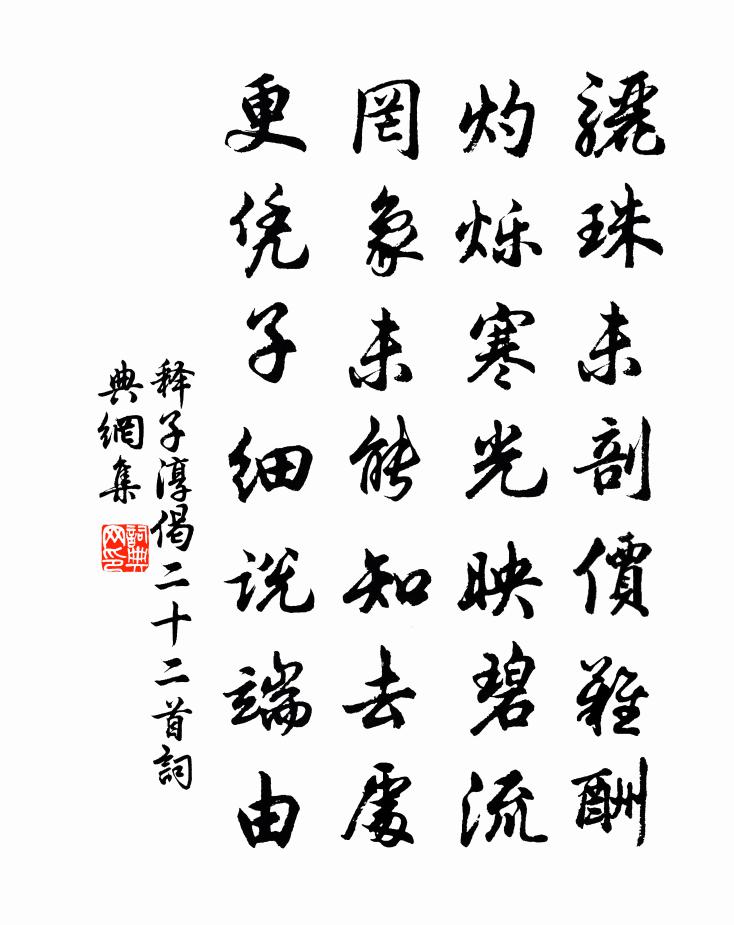 骊珠未剖價難酬
灼烁寒光映碧流
罔象未能知去處
更凭子细说端由
释子淳偈二十二首詞
典網集
詞典网印